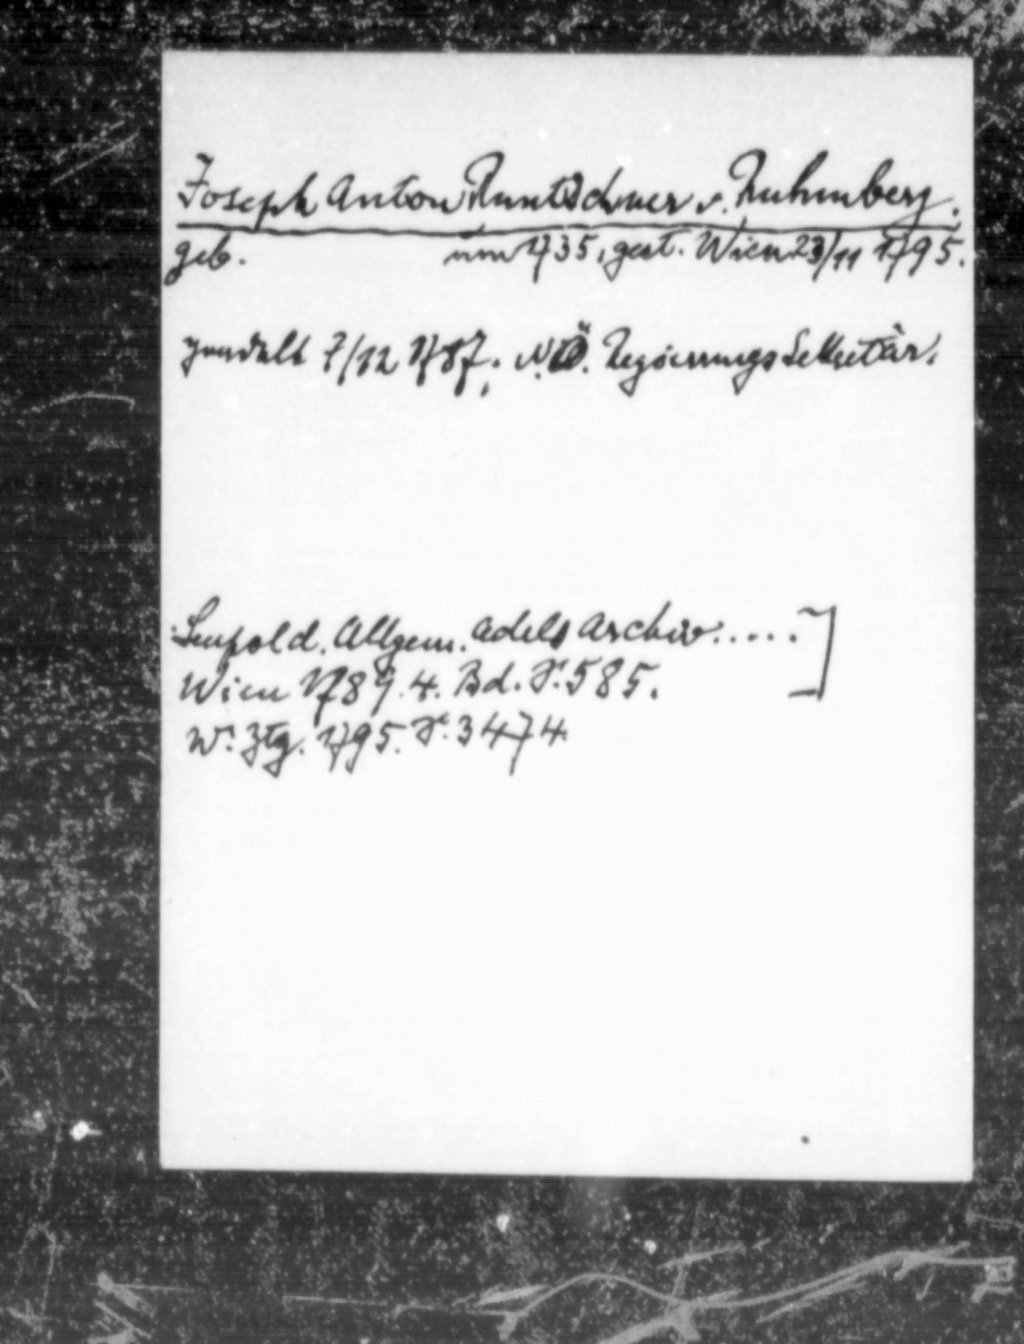 Joseph Anton Runtschner v. Ruhmberg.
geb. um 1735, gest. Wien 23/11 1795.
geadelt 7/12 1787. N.Ö. Regierungssekretär.
Leupold. Allgem. Adels Archiv.....]
Wien 1789. 4. Bd. S. 585.
W. Ztg. 1795. S. 3474